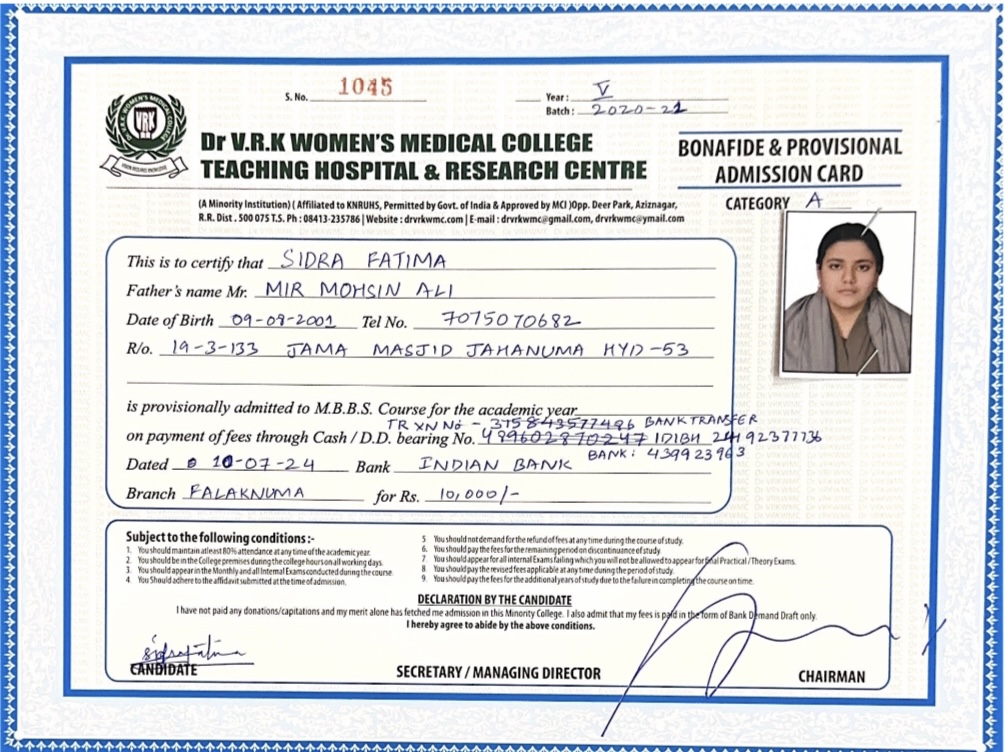 S. No. 1045
Year : V
Batch : 2020-21
VRK
Dr V.R.K WOMEN'S MEDICAL COLLEGE
TEACHING HOSPITAL & RESEARCH CENTRE
BONAFIDE & PROVISIONAL
ADMISSION CARD
(A Minority Institution) ( Affiliated to KNRUHS, Permitted by Govt. of India & Approved by MCI )Opp. Deer Park, Aziznagar,
R.R. Dist . 500 075 T.S. Ph : 08413-235786 | Website : drvrkwmc.com | E-mail : drvrkwmc@gmail.com, drvrkwmc@ymail.com
CATEGORY A
This is to certify that SIDRA FATIMA
Father's name Mr. MIR MOHSIN ALI
Date of Birth 09-09-2001 Tel No. 7075070682
R/o. 19-3-133 JAMA MASJID JAHANUMA HYD-53
is provisionally admitted to M.B.B.S. Course for the academic year
TR XN No - 375843577496 BANK TRANSFER
on payment of fees through Cash / D.D. bearing No. 499602870247 IDIBH 24192377736
BANK: 439923963
Dated 10-07-24 Bank INDIAN BANK
Branch FALAKNUMA for Rs. 10,000/-
Subject to the following conditions :-
1. You should maintain atleast 80% attendance at any time of the academic year.
2. You should be in the College premises during the college hours on all working days.
3. You should appear in the Monthly and all Internal Exams conducted during the course.
4. You Should adhere to the affidavit submitted at the time of admission.
5 You should not demand for the refund of fees at any time during the course of study.
6. You should pay the fees for the remaining period on discontinuance of study.
7. You should appear for all internal Exams failing which you will not be allowed to appear for final Practical / Theory Exams.
8. You should pay the revised fees applicable at any time during the period of study.
9. You should pay the fees for the additional years of study due to the failure in completing the course on time.
DECLARATION BY THE CANDIDATE
I have not paid any donations/capitations and my merit alone has fetched me admission in this Minority College. I also admit that my fees is paid in the form of Bank Demand Draft only.
I hereby agree to abide by the above conditions.
Sidra Fatima
CANDIDATE
SECRETARY / MANAGING DIRECTOR
CHAIRMAN